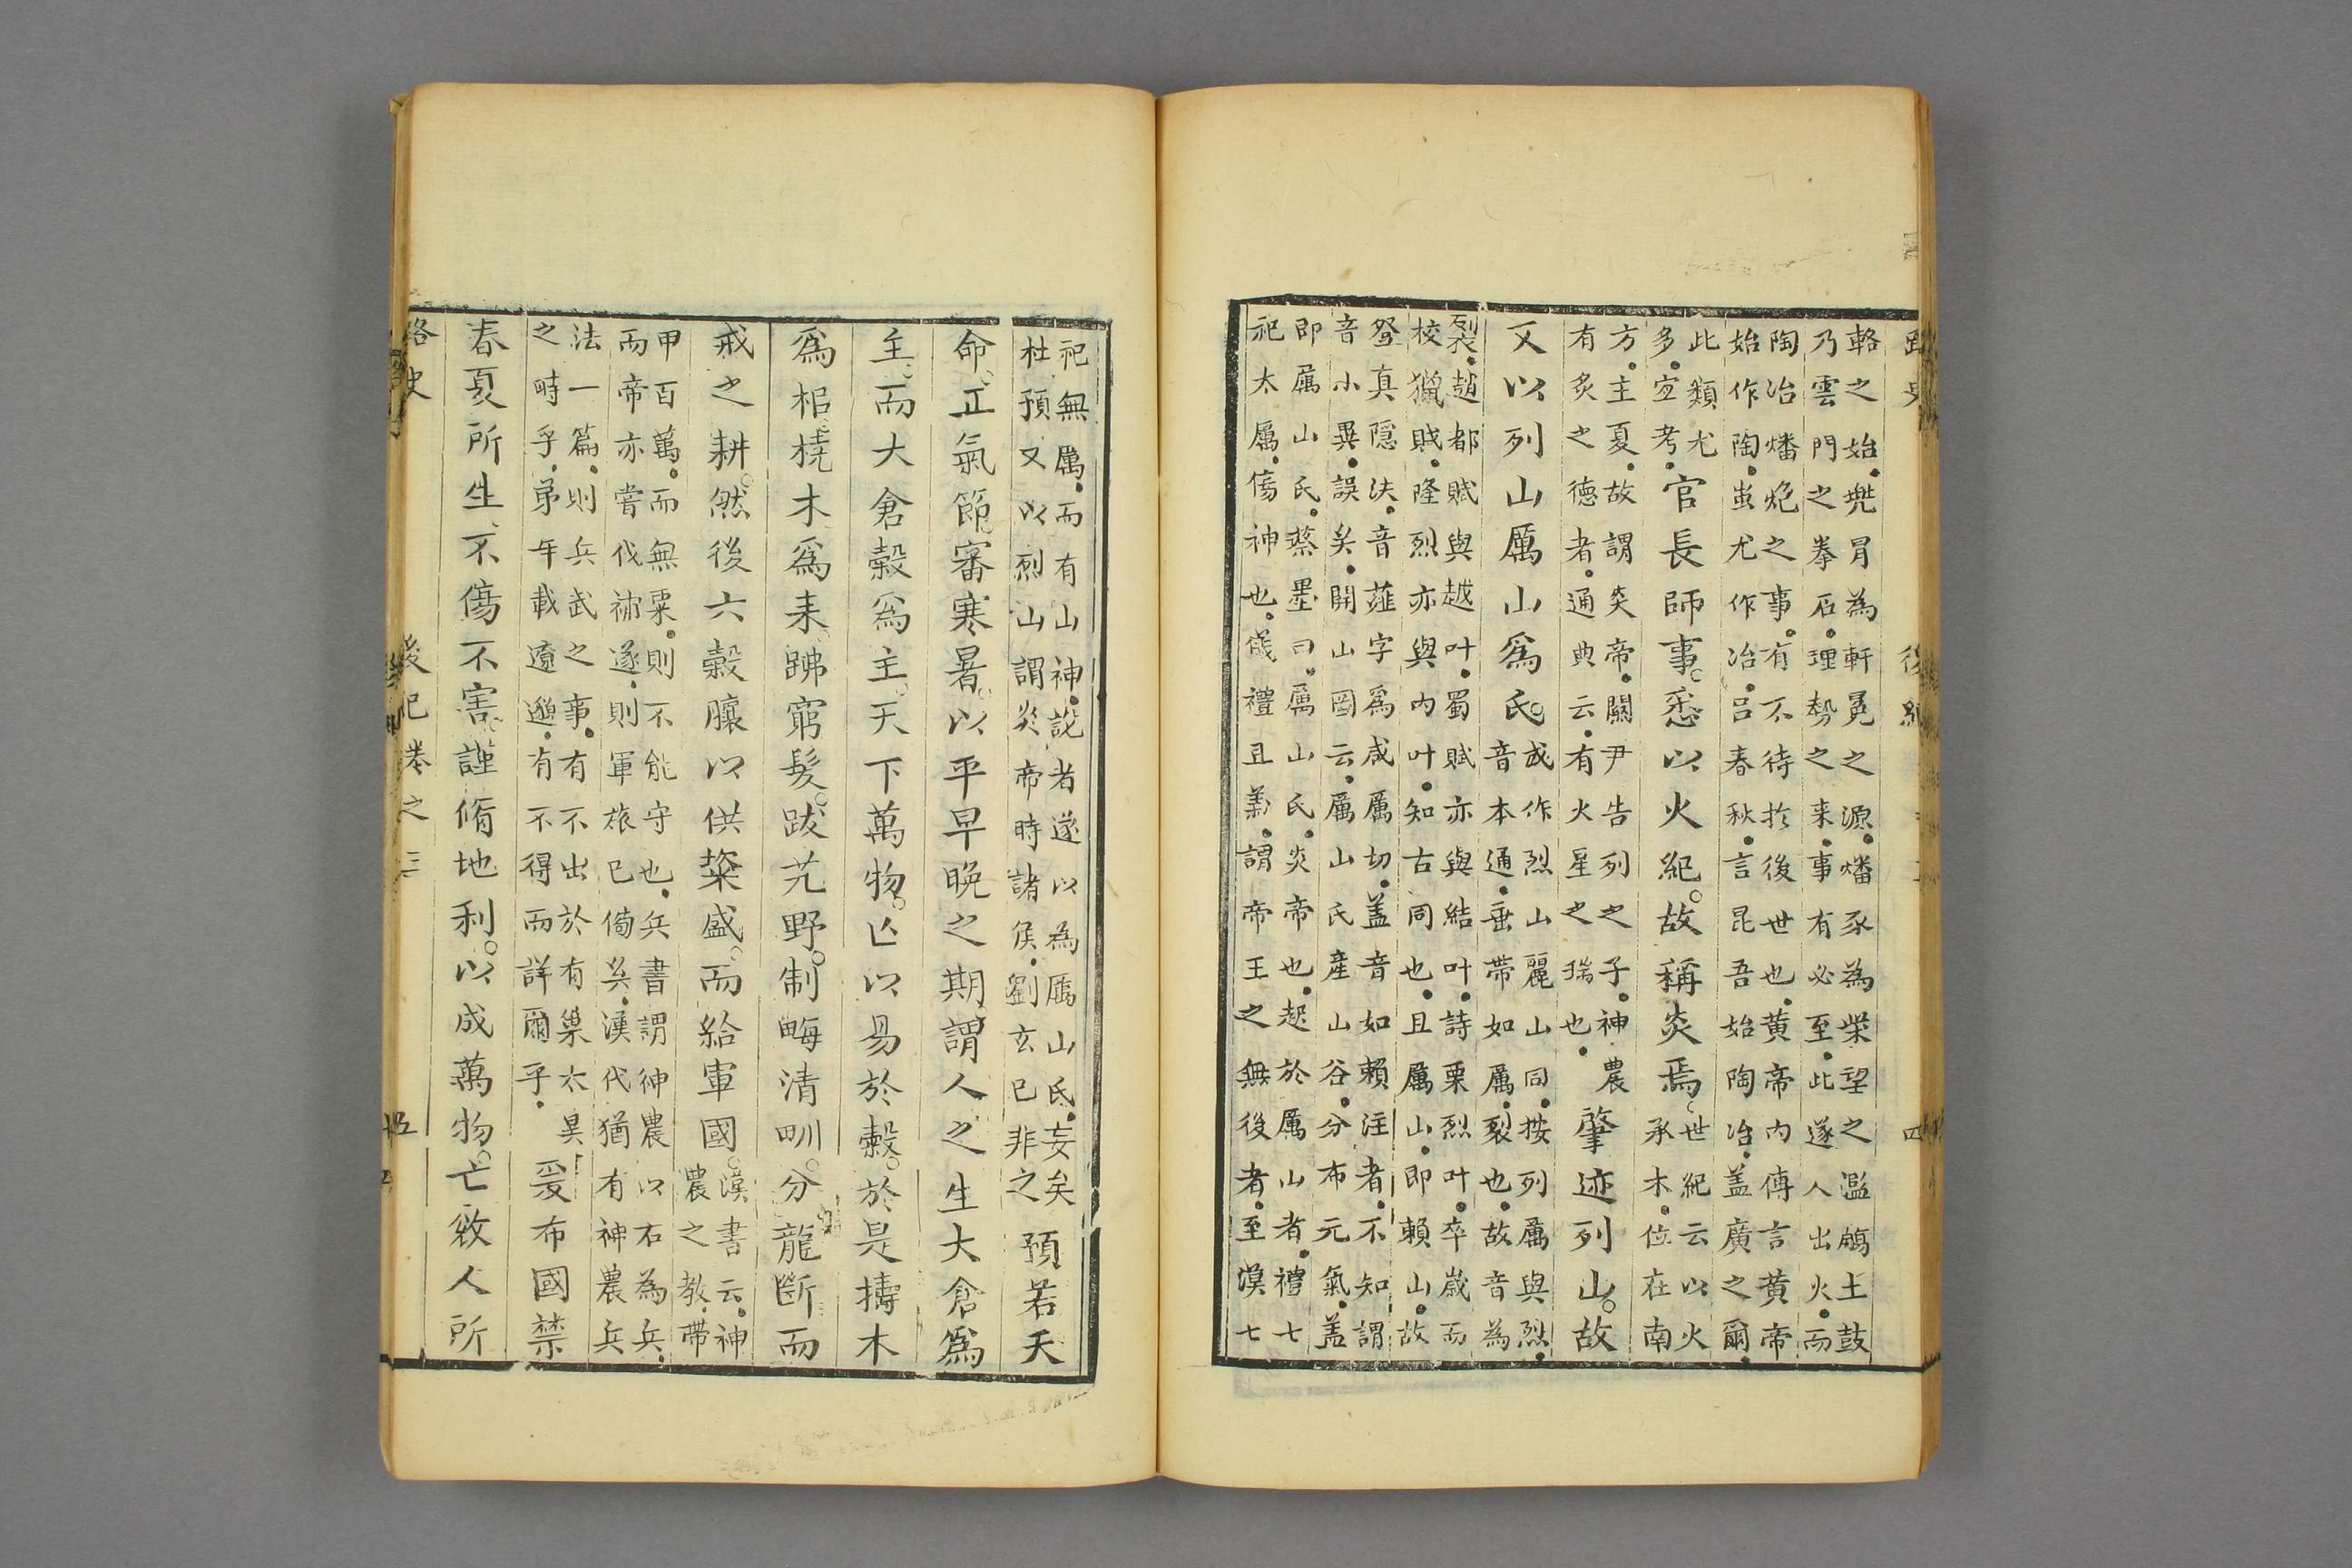 輅之始兠冐為軒冕之源燔豕為柴望之濫鴟土鼓
乃雲門之拳石理勢之来事有必至此遂人出火而
陶冶燔炮之事有不待扵後世也黄帝内傳言黄帝
始作陶蚩尤作冶吕春秋言昆吾始陶冶盖廣之爾
此類尤
多宜考
官長師事悉以火紀故稱炎焉
世紀云以火
承木位在南
方主夏故謂炎帝關尹告列之子神農
有炙之德者通典云有火星之瑞也
肇迹列山故
又以列山厲山爲氏
或作烈山麗山同按列厲與烈
音本通垂帶如厲裂也故音為
裂趙都賦與越叶蜀賦亦與結叶詩栗烈叶卒嵗而
校獵賊隆烈亦與内叶知古同也且厲山即賴山故
登真隠法音䪥字爲咸厲切盖音如賴注者不知謂
音小異誤矣開山圖云厲山氏産山谷分布元氣盖
即厲山氏蔡墨曰厲山氏炎帝也起於厲山者禮七
祀太厲傷神也儀禮且義謂帝王之無後者至漢七
路史
後紀
四
祀無厲而有山神說者遂以為厲山氏妄矣
杜預又以烈山謂炎帝時諸侯劉玄已非之
預若天
命正氣節審寒暑以平早晚之期謂人之生大倉爲
主而大倉穀爲主天下萬物亾以易於穀於是擣木
爲梠橈木爲耒䟛窮髪跋艽野制畮清甽分龍斷而
戒之耕然後六穀䑋以供粢盛而給軍國
漢書云神
農之教帶
甲百萬而無粟則不能守也兵書謂神農以石為兵
而帝亦嘗伐補遂則軍旅已偹矣漢代猶有神農兵
法一篇則兵武之事有不出於有巢太昊
之時乎苐年載遼邈有不得而詳爾
爰布國禁
春夏所生不傷不害謹脩地利以成萬物亡敚人所
路史
後紀卷之三
五